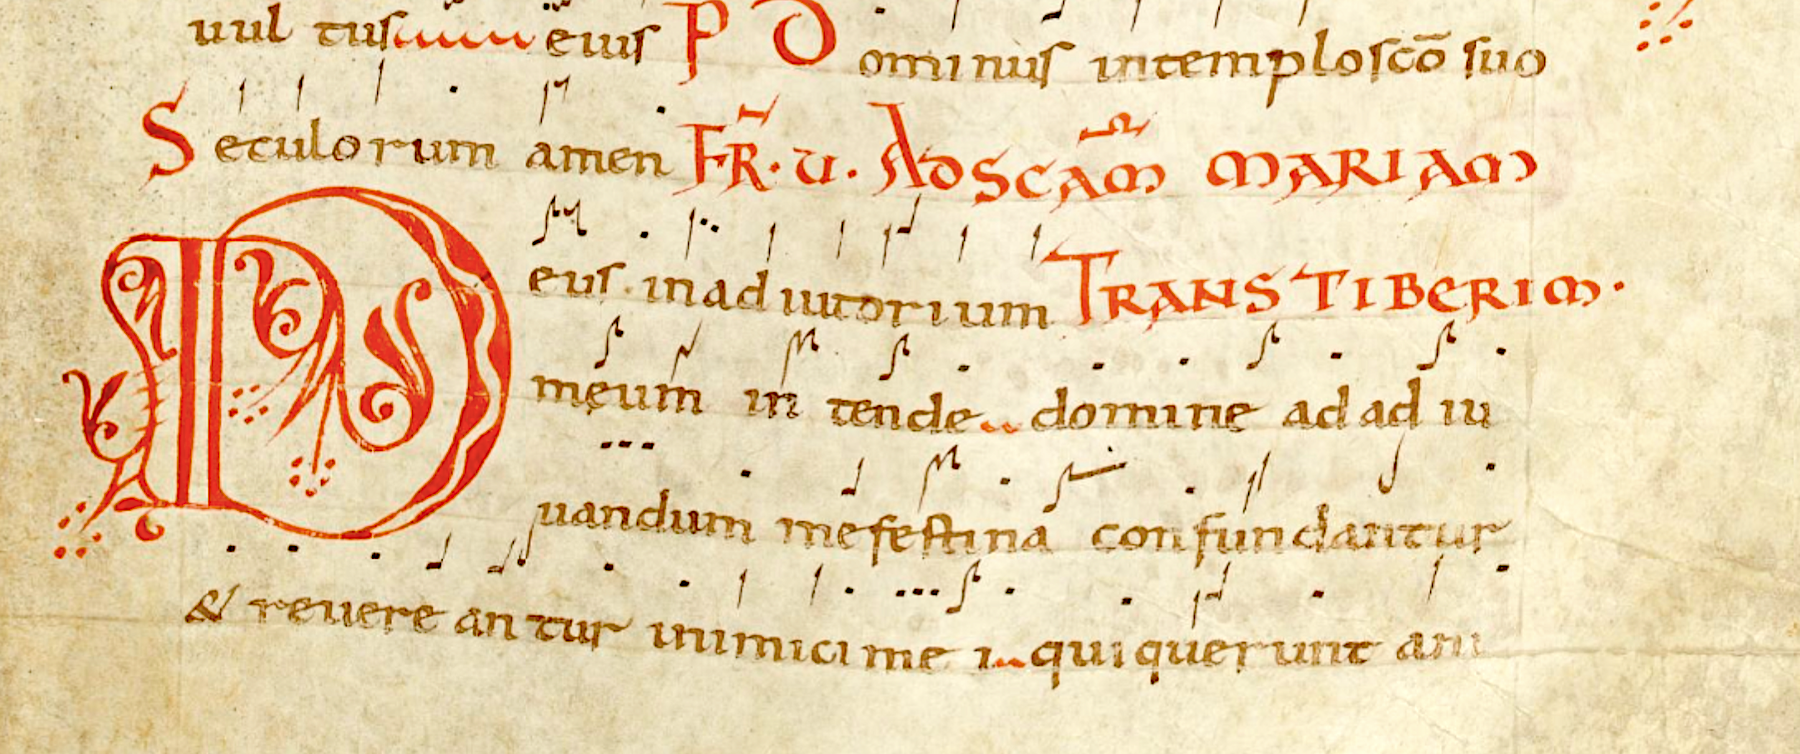 uul tus eius P Dominus intemploscō suo
Seculorum amen FR̄. U. AD SCAM̄ MARIAM
Deus inadiutorium TRANSTIBERIM.
meum in tende domine ad ad iu
uandum mefestina confundantur
& reuere an tur inimici me i qui querunt ani